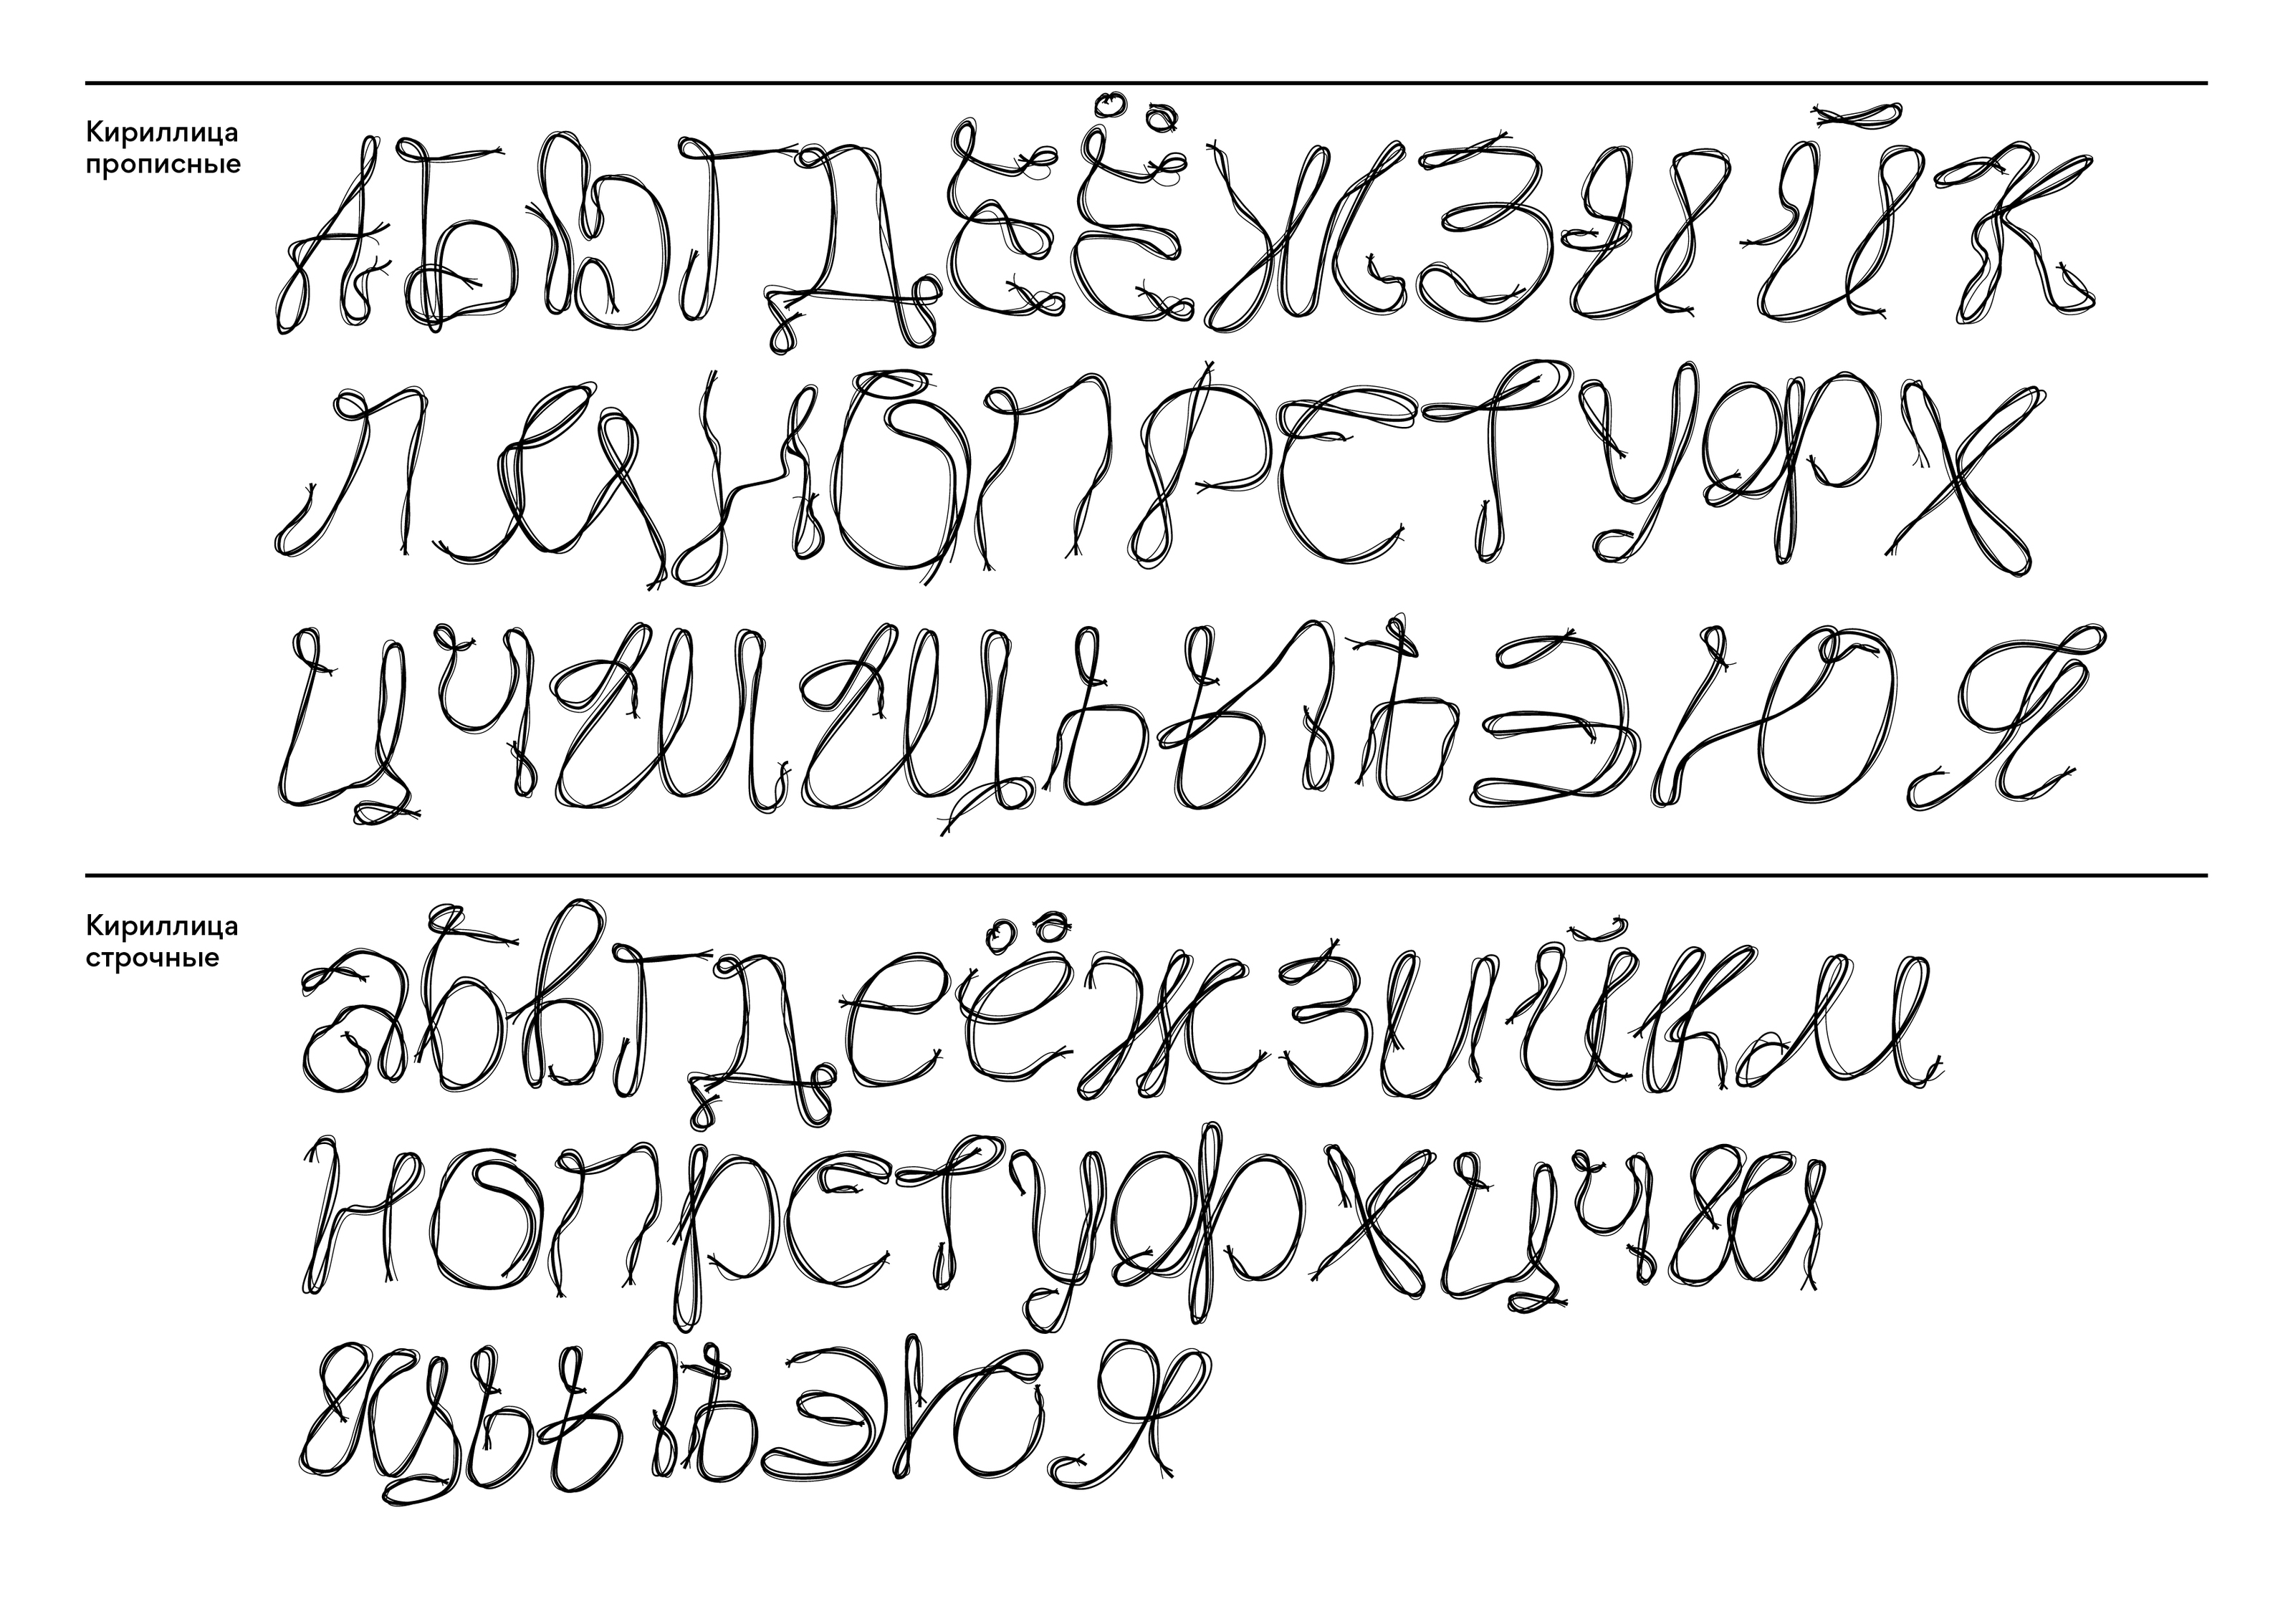 Кириллица
прописные
АБВГДЕЁЖЗИЙК
ЛМНОПРСТУФХ
ЦЧШЩЬЫЪЭЮЯ
Кириллица
строчные
абвгдеёжзийкм
нопрстуфхцчш
щьыъэюя